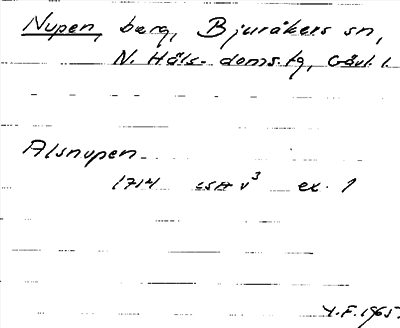 Nupen, berg, Bjuråkers sn,
N. Häls. doms.tg, Gävl. l.
Alsnupen
1714 LSA v³ ex. 1
1965.